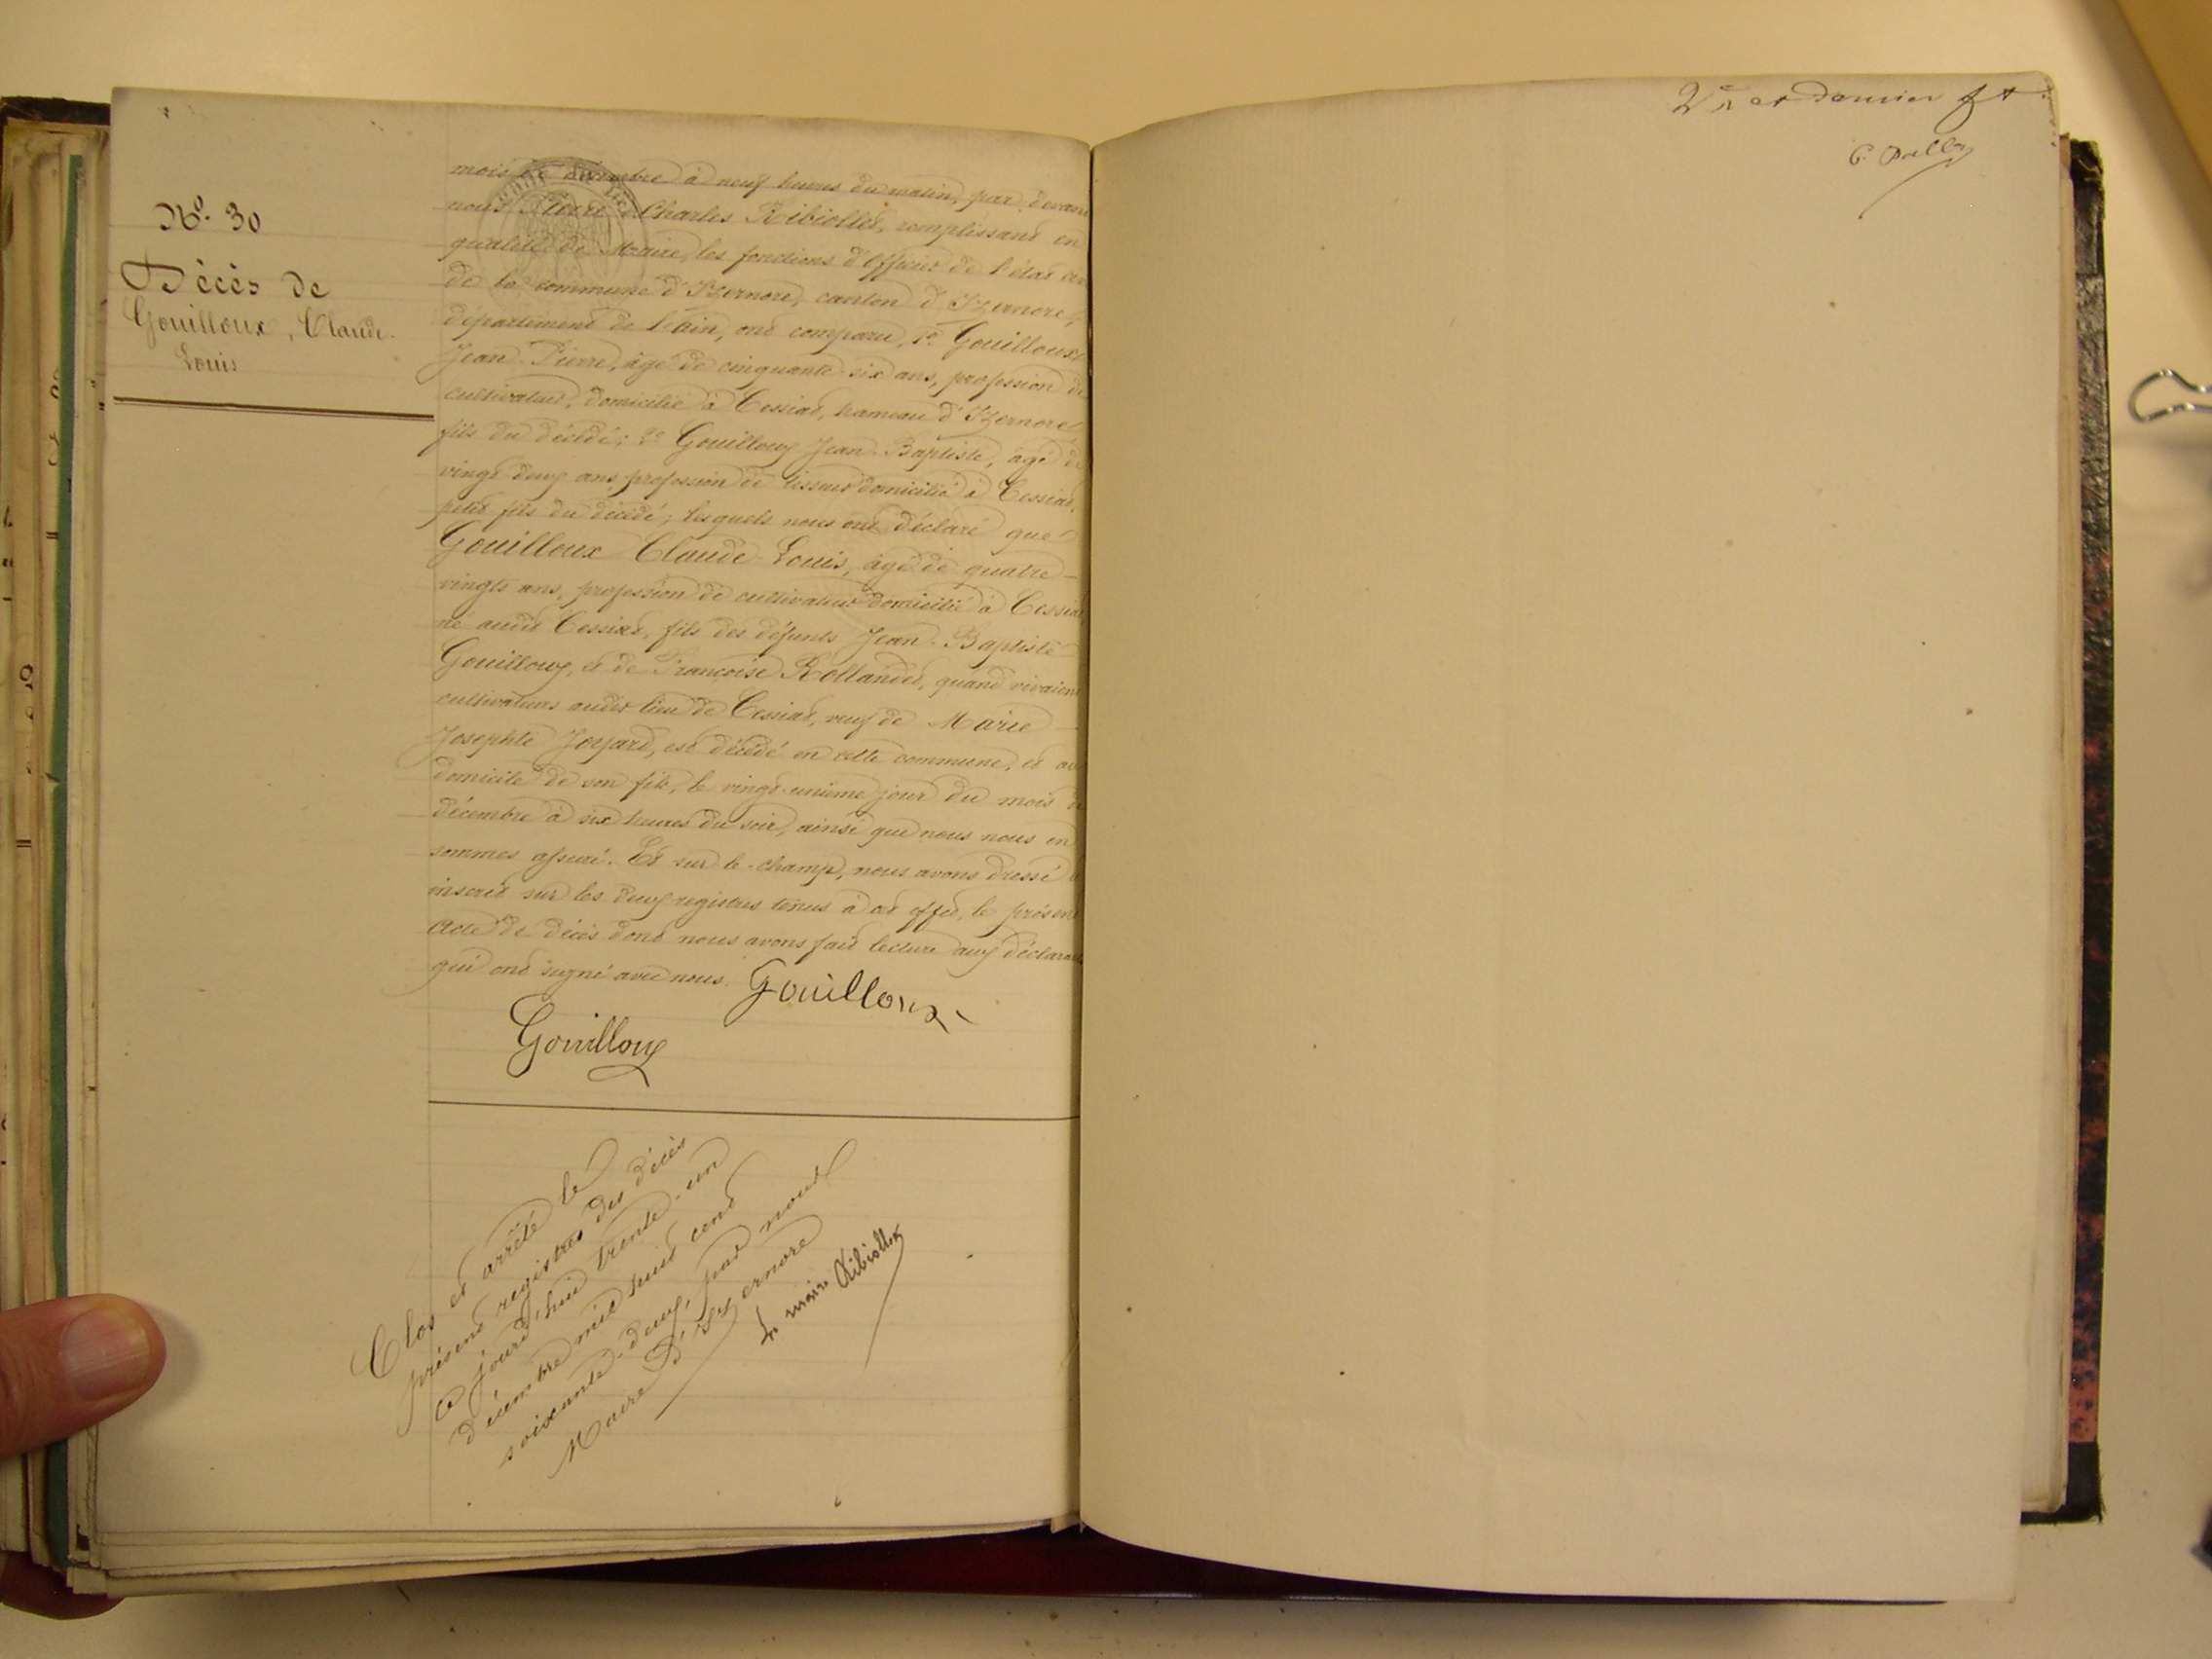 No. 30
Décès de
Gouilloux, Claude-
Louis
mois de décembre à neuf heures du matin, par devant
nous Pierre Charles Ribiollet, remplissant en
qualité de Maire, les fonctions d'Officier de l'état
de la commune d'Izernore, canton d'Izernore,
département de l'ain, ont comparu, 1o Gouilloux
Jean-Pierre, âgé de cinquante-six ans, profession de
cultivateur, domicilié à Cessiat, hameau d'Izernore
fils du décédé; 2o Gouilloux Jean-Baptiste, âgé de
vingt-deux ans, profession de tisseur domicilié à Cessiat,
petit fils du décédé; lesquels nous ont déclaré que
Gouilloux Claude-Louis, âgé de quatre-
vingts ans, profession de cultivateur domicilié à Cessiat
né audit Cessiat, fils des défunts Jean-Baptiste
Gouilloux, et de Françoise Rollandet, quand vivaient
cultivateurs audit lieu de Cessiat, veuf de Marie
Josephte Joyard, est décédé en cette commune, et au
domicile de son fils, le vingt-unième jour du mois de
décembre à six heures du soir, ainsi que nous nous en
sommes assuré. Et sur-le-champ, nous avons dressé
inscrit sur les deux registres tenus à cet effet, le présent
acte de décès dont nous avons fait lecture aux déclarants
qui ont signé avec nous. Gouilloux
Gouilloux
Clos et arrêté le
présent registres des décès
ce jourd'hui trente-un
décembre mil huit cent
soixante-deux, par nous
Maire d'Izernore
Le maire Ribiollet
2e et dernier ft.